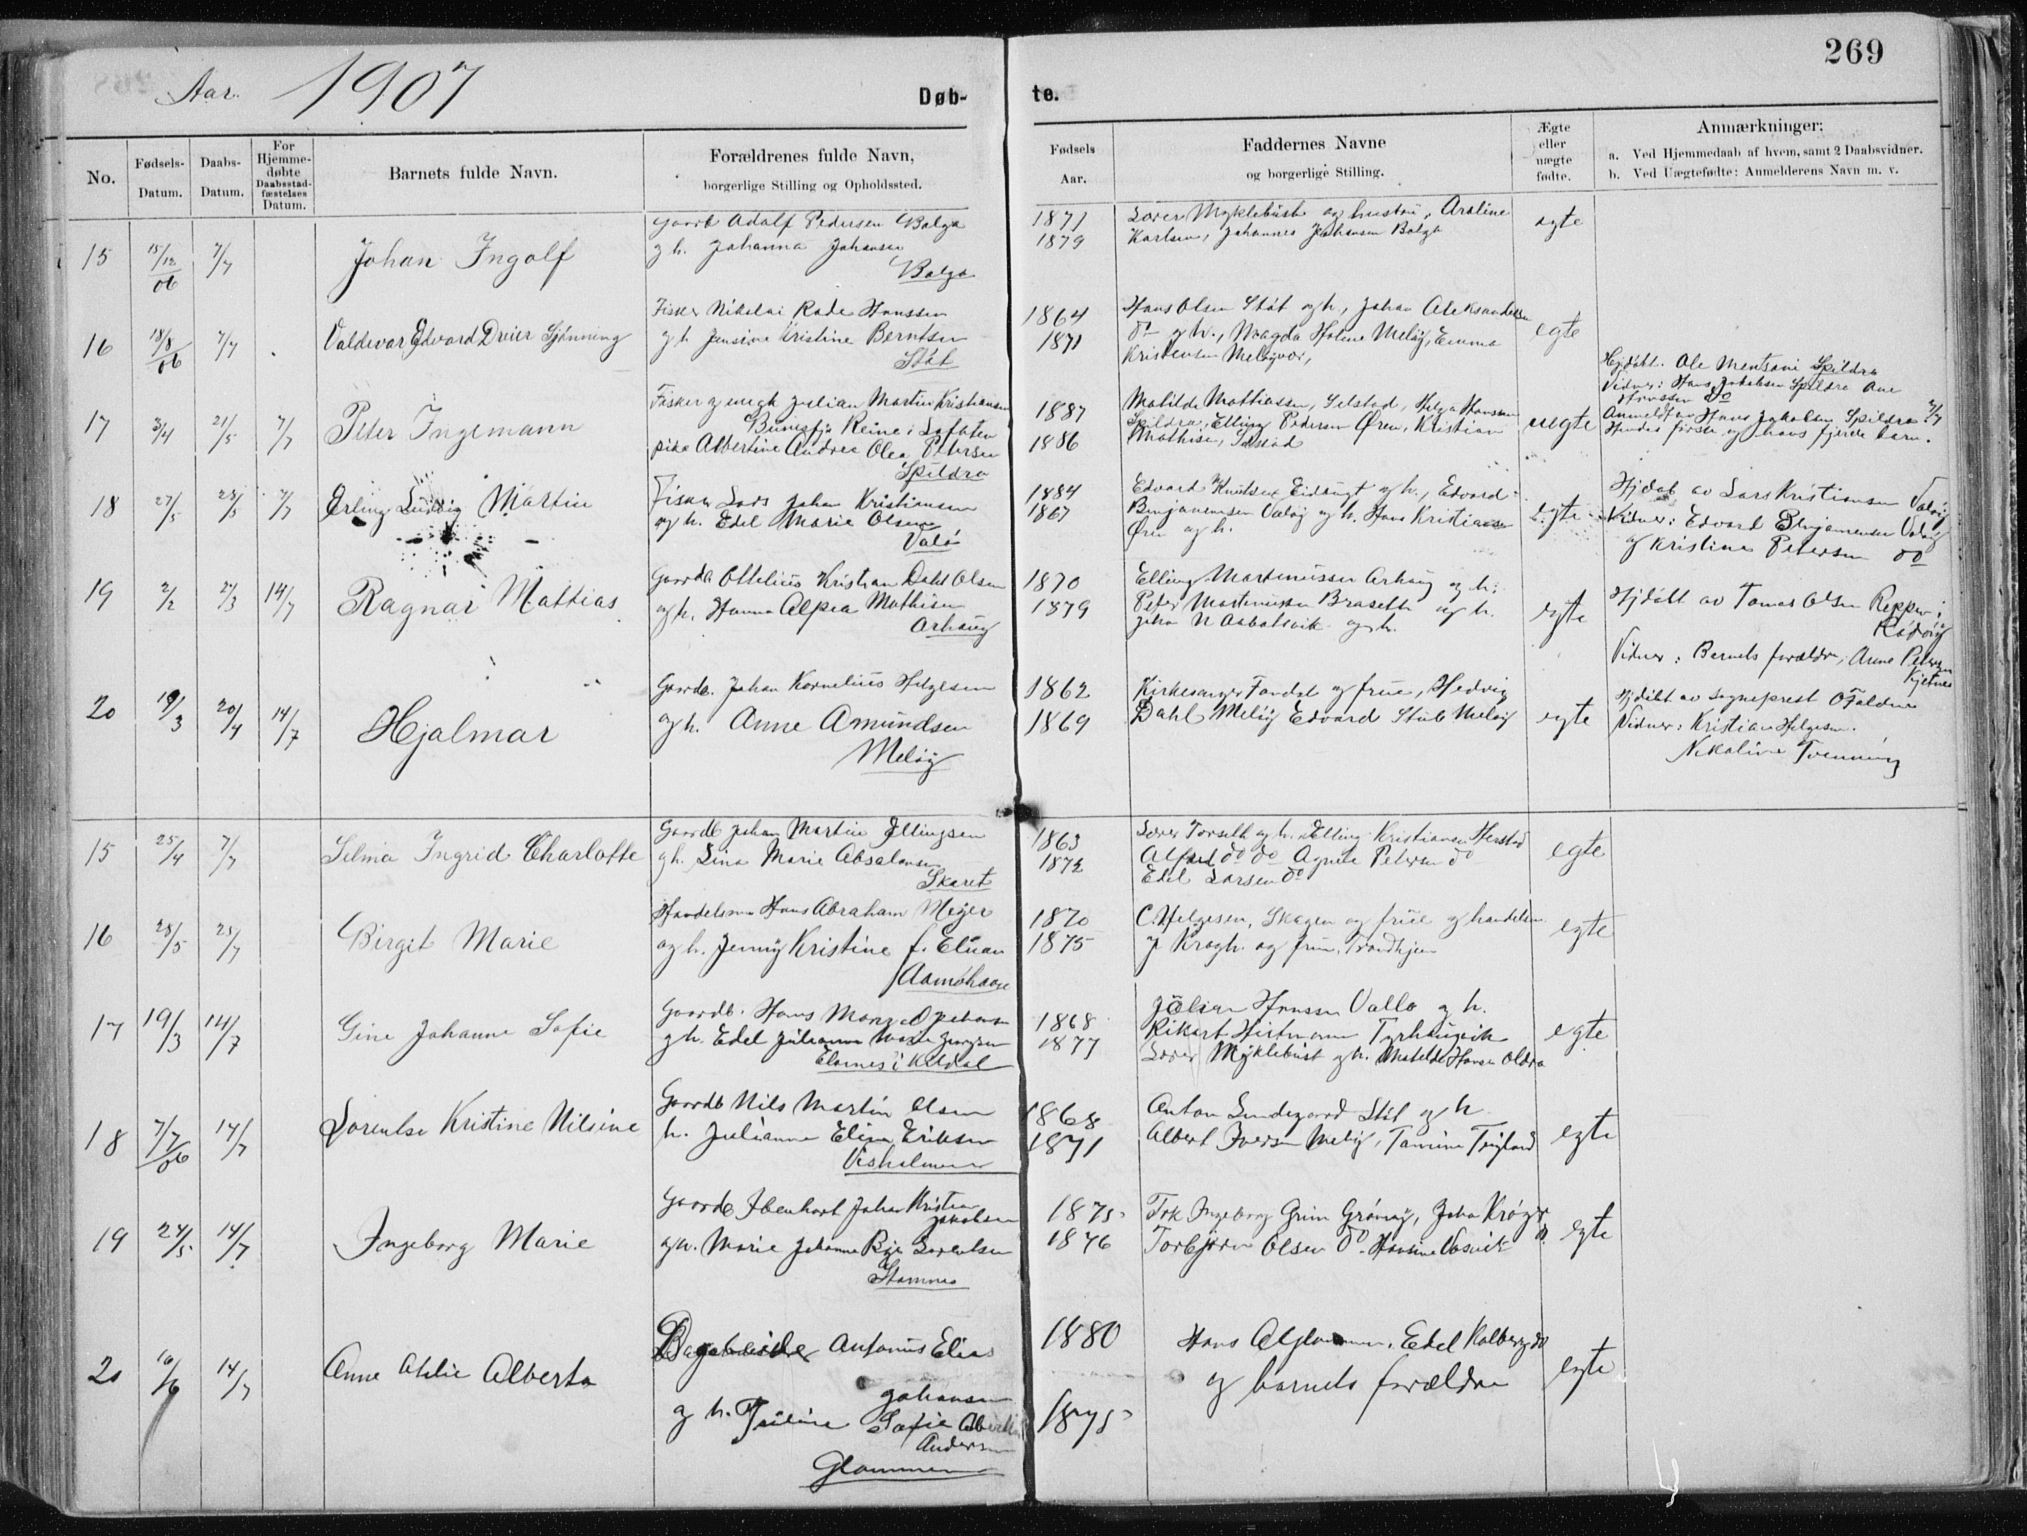 269
Aar. 1907
Døb-
te.
No.
Fødsels-
Datum.
Daabs-
Datum.
For
Hjemme-
døbte
Daabsstad-
fæstelses
Datum.
Barnets fulde Navn.
Forældrenes fulde Navn,
borgerlige Stilling og Opholdssted.
Fødsels
Aar.
Faddernes Navne
og borgerlige Stilling.
Ægte
eller
uægte
fødte.
Anmærkninger:
a. Ved Hjemmedaab af hvem, samt 2 Daabsvidner.
b. Ved Uægtefødte: Anmelderens Navn m. v.
15
15/12
06
7/7
Johan Ingolf
Gaardb Adolf Pedersen Bolga
g h. Johanna Johansen
Bolga
1871
1879
Lærer Myklebust og hustru,
Karlsen, Johannes Johansen Bolga
egte
16
18/8
06
7/7
Valdevar Edvard Dvier Sjønning
Fisker Nikolai Rode Hanssen
g h Jensine Kristine Berntsen
Støt
1864
1871
Hans Olsen Støt og h., Johan Aleksandersen
do og h., Magda Holene Meløy, Emma
Kristensen Meløyvær,
egte
17
3/4
21/5
7/7
Peter Ingemann
Fisker g ungk Julian Martin Kristiansen
Reine i Lofoten
pike Albertine Andrea Olea Petersen
Spildra
1887
1886
Matilde Mathiassen, Selstad, Helga Hanssen
Spildra, Elling Pedersen Øren, Kristian
Mathisen, Selstad
uegte
Hjdøbt. Ole Mentsoni Spildra
Vidner: Hans Jakobsen Spildra Ane
Hanssen do
Anmeldt av Hans Jakobsen Spildra 7/7
Hendes første og hans fjerde barn.
18
27/5
28/5
7/7
Erling Ludvig Martin
Fisker Lars Johan Kristiansen
og h. Edel Marie Olsen
Valø
1884
1867
Edvard Knutsen Eidbugt og h., Edvard
Benjaminsen Valøy og h. Hans Kristiansen
Øren og h.
egte
Hjdøb av Lars Kristiansen Valøy
Vidner: Edvard Benjaminsen Valøy
og Kristine Petersen do
19
2/2
2/3
14/7
Ragnar Mattias
Gaardb Ottelius Kristian Dahl Olsen
og h. Hanna Alpea Mathisen
Arhaug
1870
1879
Elling Martinussen Arhaug og h.
Peter Martinussen Braseth og h.
Johan N Aabotsvik og h.
egte
Hjdøbt av Tomas Olsen Reppen i
Rødøy
Vidner: Barnets forældre, Anne Petersen
Kjelnes
20
19/3
20/4
14/7
Hjalmar
Gaardb. Johan Kornelius Helgesen
og h. Anne Amundsen
Meløy
1862
1869
Kirkesanger Fondal og frue, Hedvig
Dahl Meløy Edvard Stub Meløy
egte
Hjdøbt av sogneprest O Falden
Vidner: Kristian Helgesen.
Nikoline Tvenning
15
25/4
7/7
Selma Ingrid Charlotte
Gaardb Johan Martin Ellingsen
g h. Lina Marie Absalonsen
Skaret
1863
1872
Lærer Torseth og h. Elling Kristiansen Herstad
Alfred do do Agnete Petersen do
Edel Larsen do
egte
16
28/5
21/7
Birgit Marie
Handelsm Hans Abraham Meyer
og h. Jenny Kristine f. Elvan
Aamøhavn
1870
1875
C. Helgesen, Skagen og frue g handelsm
J Krogh og frue. Trondhjem
egte
17
19/3
14/7
Gine Johanne Sofie
Gaardb. Hans Johansen
g h. Edel Julianne
1868
1877
Julian Hanssen Valla og h.
Rikart Heitmann Torhausvik
Lærer Myklebust og h. Matilde Hansen Oldra
egte
18
7/7
06
14/7
Lorentse Kristine Nilsine
Gaardb Nils Martin Olsen
h. Julianne Elisa Eriksen
Visholmen
1868
1871
Anton Lundegaard Støt og h
Albert Iversen Meløy, Tomine
egte
19
24/5
14/7
Ingeborg Marie
Gaardb Ibenhart Johan Kristian
Jakobsen
og h. Marie Johanne Bye Lorentsen
Stamnes
1875
1876
Frk Ingeborg Grim Grønøy, John Krøyer
Torbjørn Olsen do. Hansine Vasvik
egte
20
10/6
14/7
Anne Otelie Alberta
Dagarbeider Antonius Elias
Johansen
g h. Sofie
Andersen
Glommen
1880
1875
Hans Edel Kolberg do
og barnets forældre
egte